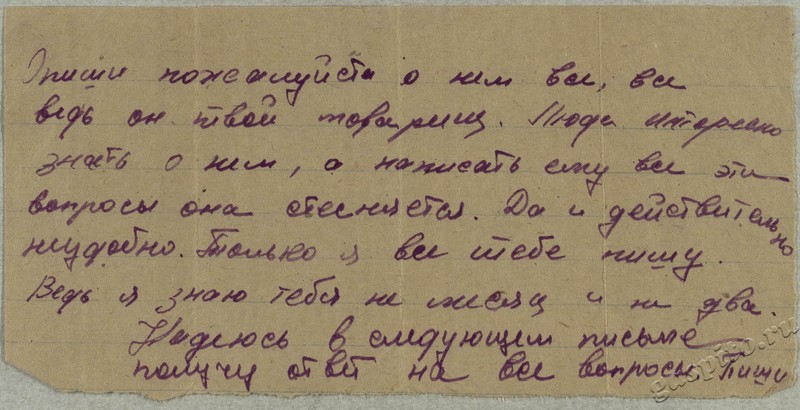 Опиши пожалуйста о нем все, все
ведь он твой товарищ. Люда интересно
знать о нем, а написать ему все эти
вопросы она стесняется. Да и действительно
неудобно. Только я все тебе пишу.
Ведь я знаю тебя не месяц и не два.
Надеюсь в следующем письме
получу ответ на все вопросы. Пиши
gaspito.ru